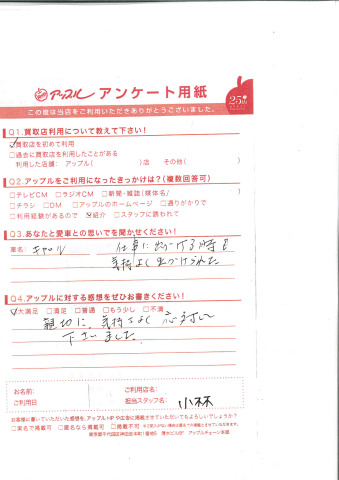 アップル アンケート用紙
この度は当店をご利用いただきありがとうございました。
25th
Q1.買取店利用について教えて下さい!
☑買取店を初めて利用
□過去に買取店を利用したことがある
利用した店舗: アップル( )店 その他( )
Q2.アップルをご利用になったきっかけは?(複数回答可)
□テレビCM □ラジオCM □新聞・雑誌(媒体名/ )
□チラシ □DM □アップルのホームページ □通りがかりで
□利用経験があるので ☑紹介 □スタッフに誘われて
Q3.あなたと愛車との思いでを聞かせください!
車名: 仕事に出かける時も
気持よく出かけられた
Q4.アップルに対する感想をぜひお書きください!
☑大満足 □満足 □普通 □もう少し □不満
親切に、気持よく応対して
下さいました。
お名前: ご利用店名:
ご利用日 担当スタッフ名: 小林
お客様に書いていただいた感想を、アップルHPや広告に掲載させていただいてもよろしいでしょうか?
□実名で掲載可 □匿名なら掲載可 □掲載不可